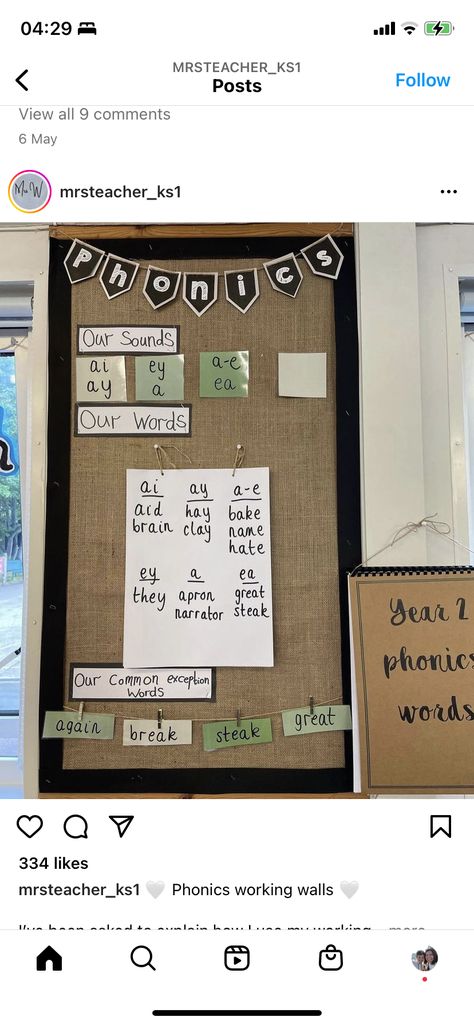 04:29
MRSTEACHER_KS1
Posts
Follow
View all 9 comments
6 May
mrsteacher_ks1
Phonics
Our Sounds
ai ey a-e
ay a ea
Our Words
ai ay a-e
aid hay bake
brain clay name
hate
ey a ea
they apron great
narrator steak
Our Common exception
Words
again break steak great
Year 2
phonics
words
334 likes
mrsteacher_ks1 🤍 Phonics working walls 🤍
I've been asked to explain how I use my working... more